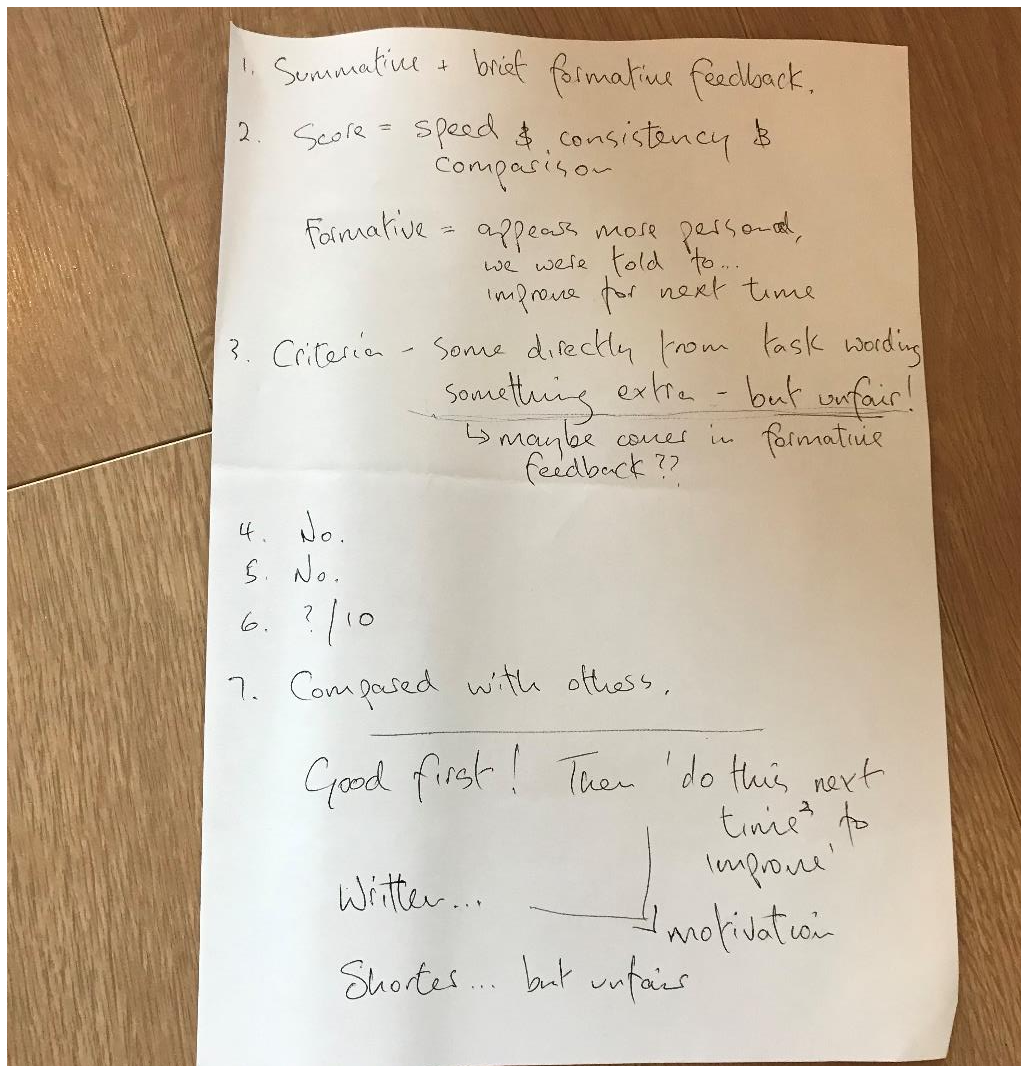 1. Summative + brief formative feedback.
2. Score = speed & consistency &
comparison
Formative = appears more personal,
we were told to...
improve for next time
3. Criteria - some directly from task wording
something extra - but unfair!
↳ maybe cover in formative
feedback??
4. No.
5. No.
6. ?/10
7. Compared with others.
Good first! Then 'do this next
time to
improve'
Written...
motivation
Shorter... but unfair